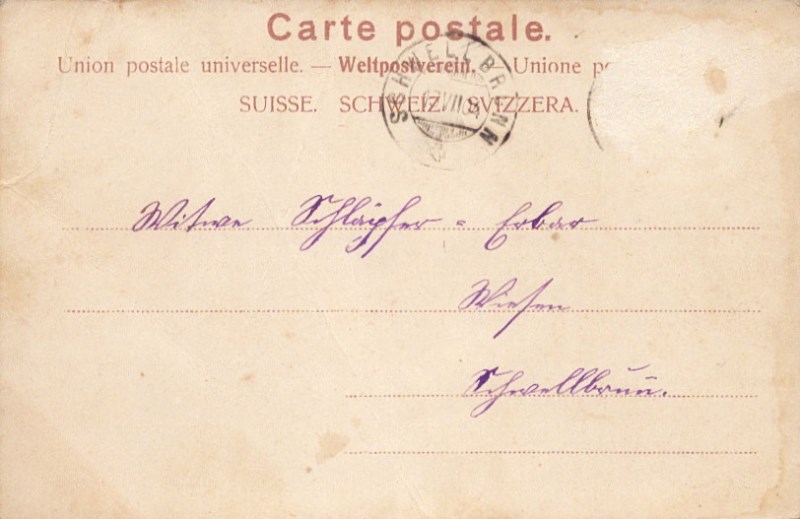 Carte postale.
Union postale universelle. — Weltpostverein. — Unione
SUISSE. SCHWEIZ. SVIZZERA.
SCHWELLBRUNN
Witwe Schläpfer = Erbar
Wiesen
Schwellbrunn.